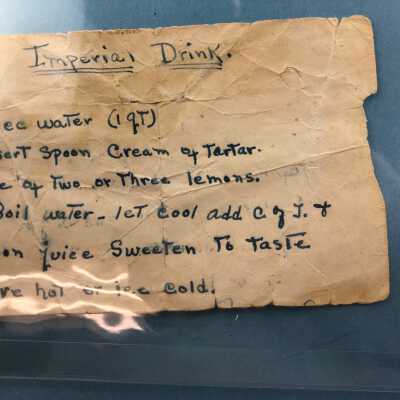 Imperial Drink.
ec water (1 qT)
sert Spoon Cream of Tartar.
e of Two or Three lemons.
Boil water - let cool add C of T. &
on juice Sweeten To Taste
ve hot or ice cold.